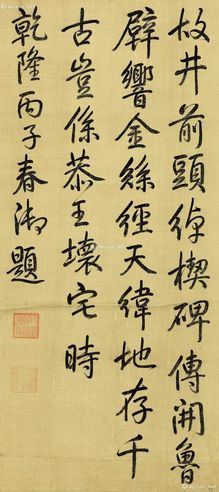 故井前頭綽楔碑傳聞魯
壁響金絲經天緯地存千
古豈係恭王壞宅時
乾隆丙子春御題